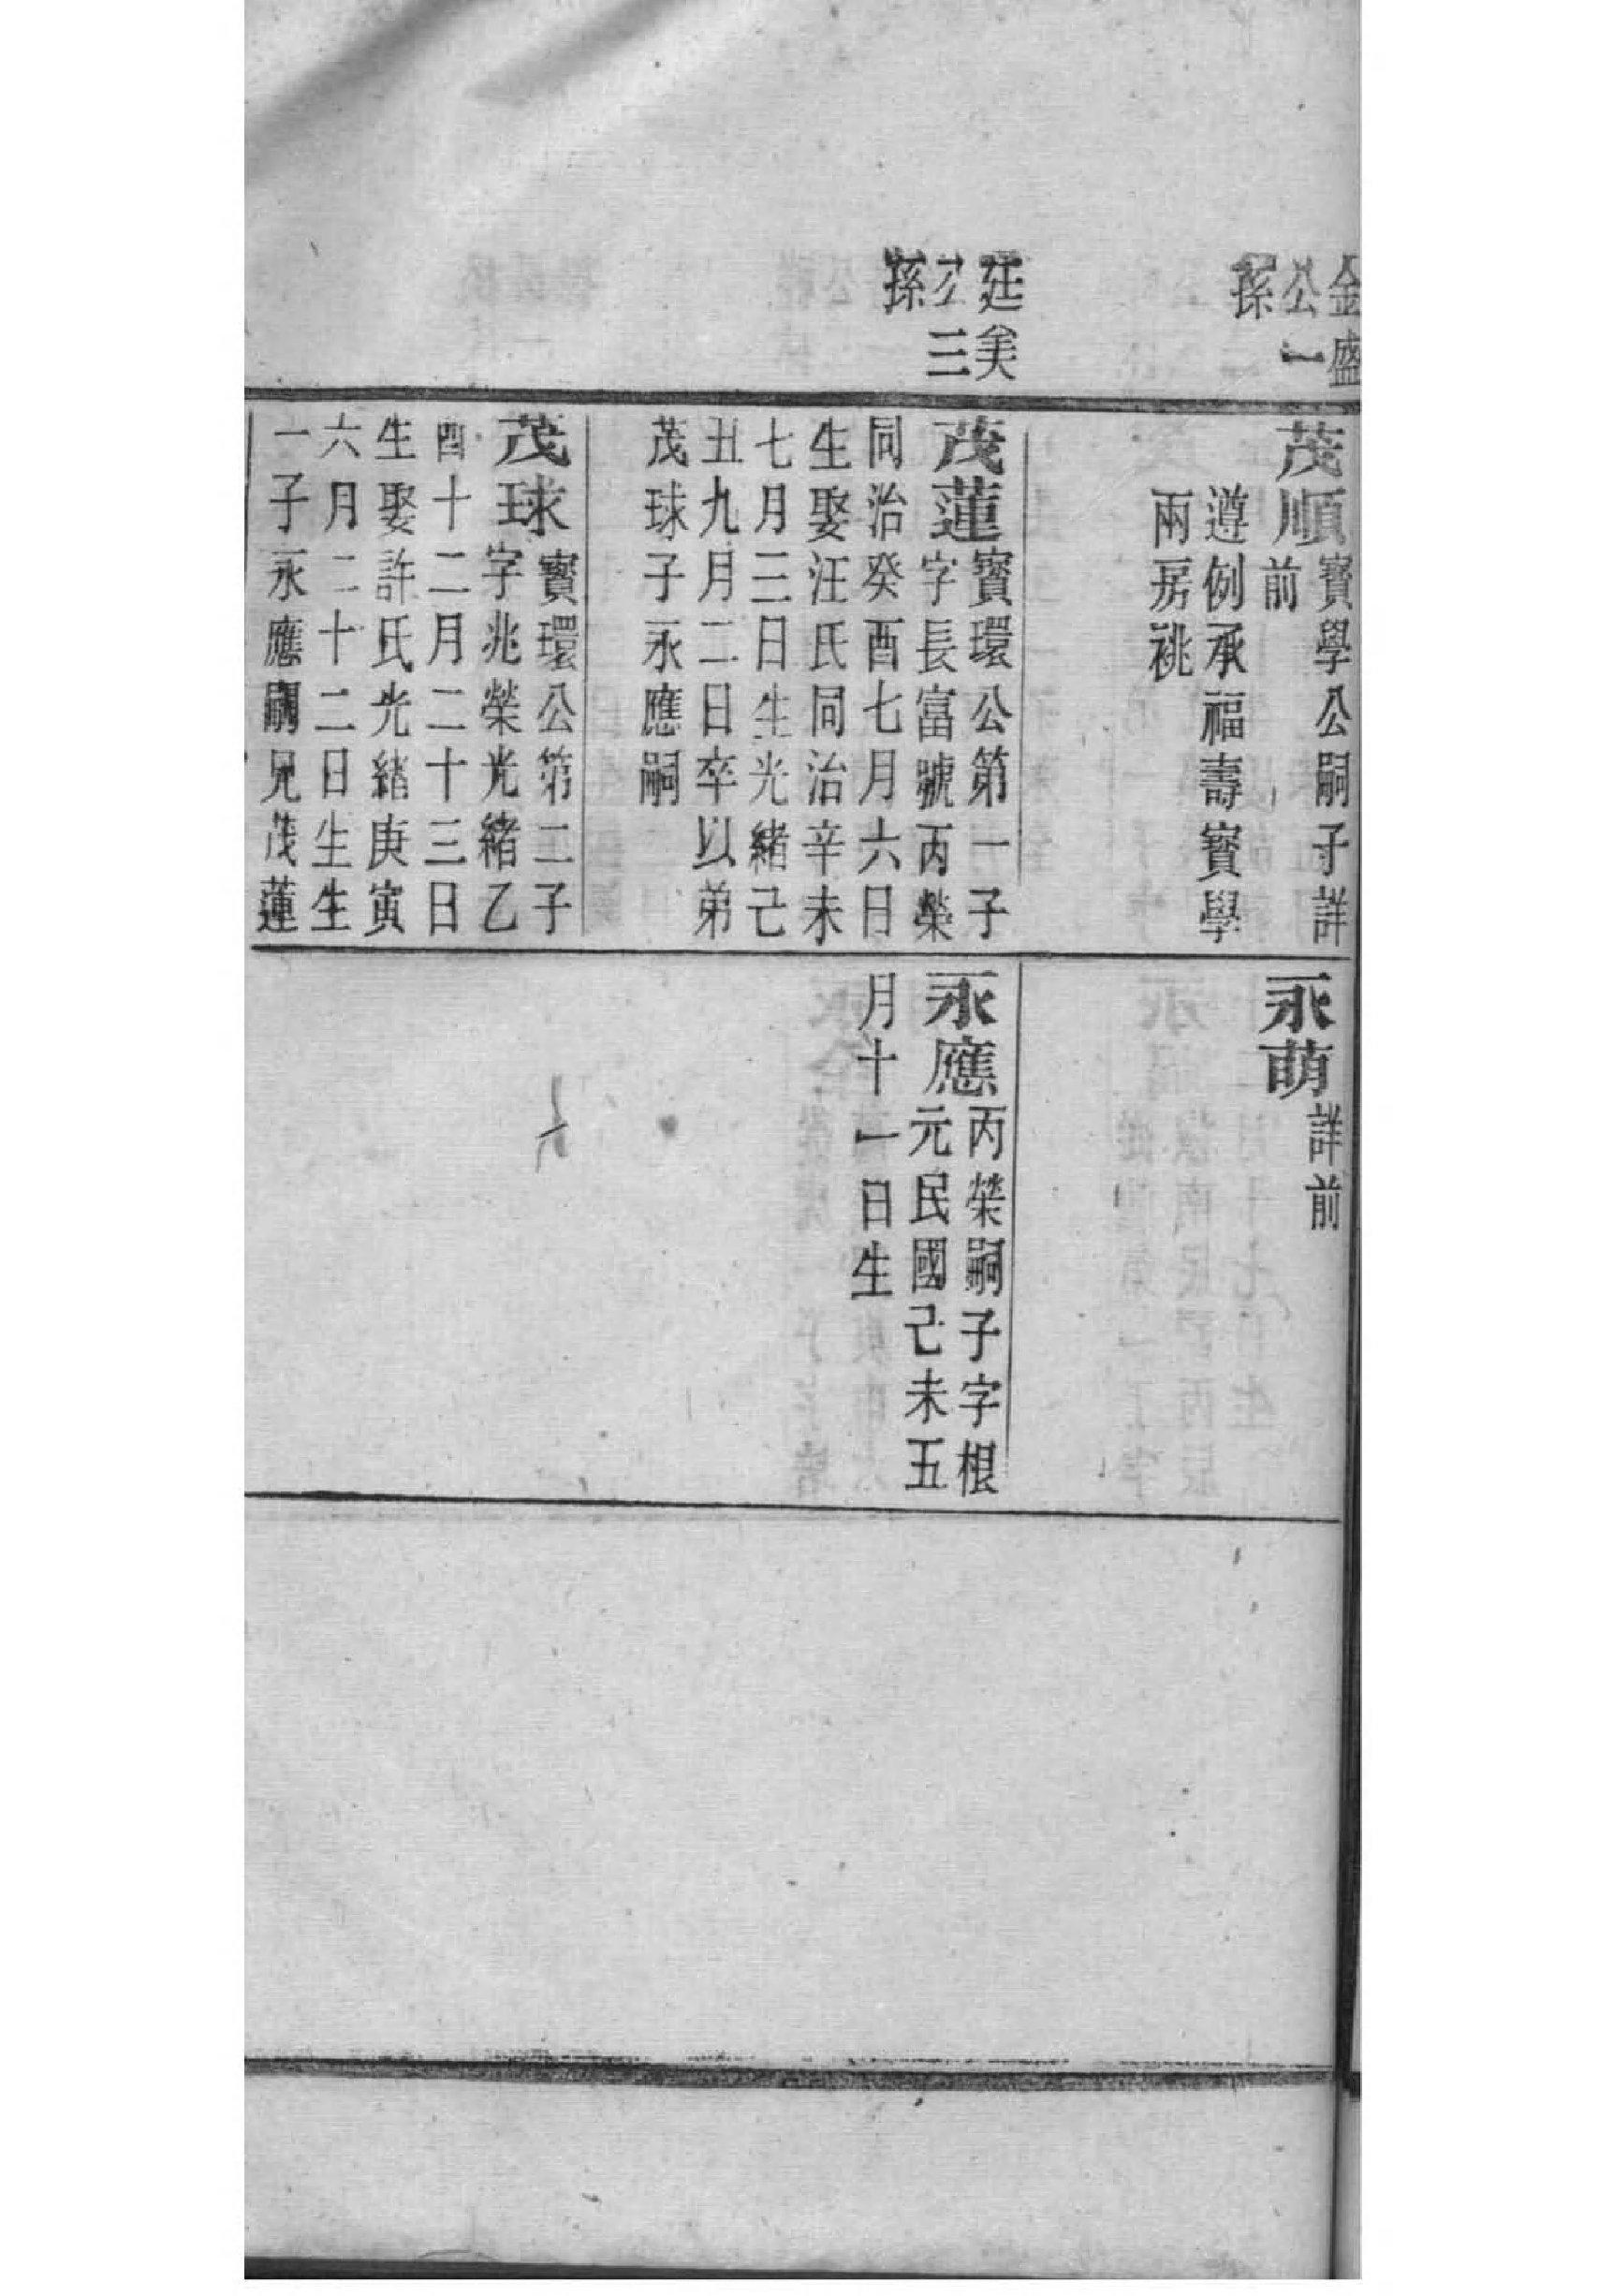 金盛
公一
孫
茂順
寳學公嗣子詳
前
遵例承福壽寳學
兩房祧
永萌
詳前
廷美
公三
孫
茂蓮
寳環公第一子
字長富號丙榮
同治癸酉七月六日
生娶汪氏同治辛未
七月三日生光緒己
丑九月二日卒以弟
茂球子永應嗣
永應
丙榮嗣子字根
元民國己未五
月十一日生
茂球
寳環公第二子
字兆榮光緒乙
酉十二月二十三日
生娶許氏光緒庚寅
六月二十二日生生
一子永應嗣兄茂蓮